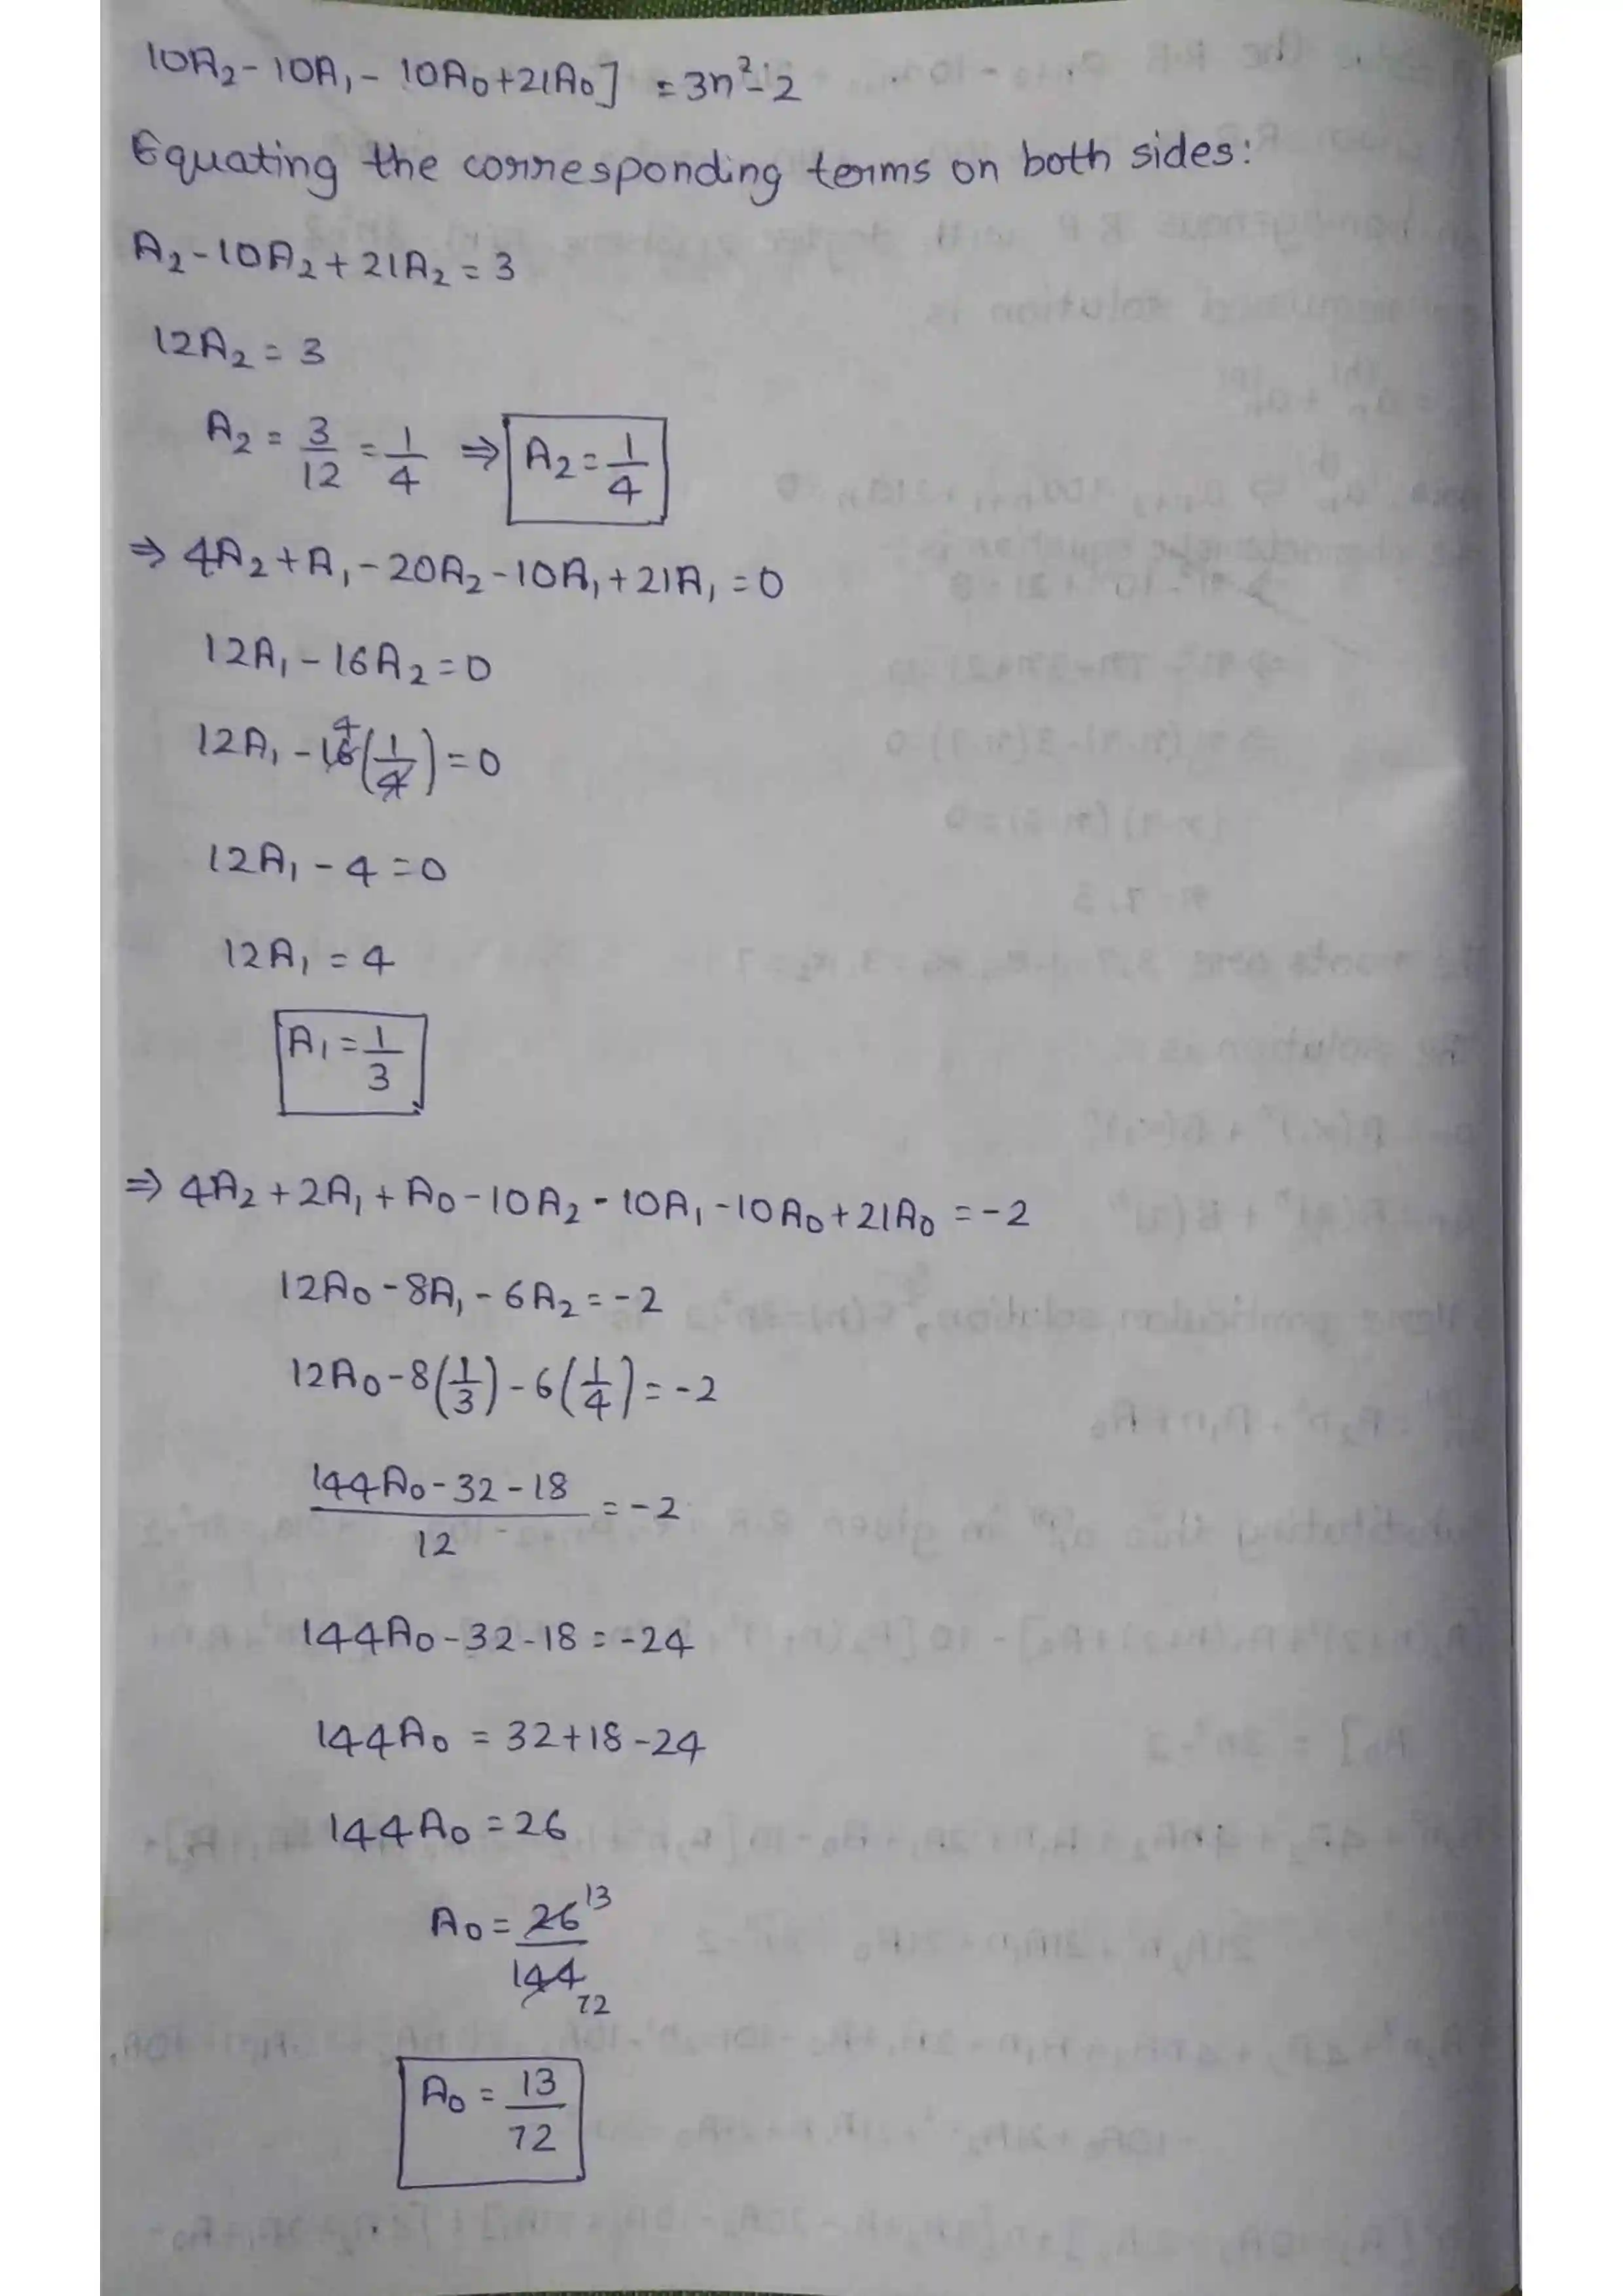 10A₂ - 10A₁ - 10A₀ + 21A₀] = 3n² - 2
Equating the corresponding terms on both sides:
A₂ - 10A₂ + 21A₂ = 3
12A₂ = 3
A₂ = 3/12 = 1/4 ⇒ A₂ = 1/4
⇒ 4A₂ + A₁ - 20A₂ - 10A₁ + 21A₁ = 0
12A₁ - 16A₂ = 0
12A₁ - 16⁴(1/4) = 0
12A₁ - 4 = 0
12A₁ = 4
A₁ = 1/3
⇒ 4A₂ + 2A₁ + A₀ - 10A₂ - 10A₁ - 10A₀ + 21A₀ = -2
12A₀ - 8A₁ - 6A₂ = -2
12A₀ - 8(1/3) - 6(1/4) = -2
144A₀ - 32 - 18 / 12 = -2
144A₀ - 32 - 18 = -24
144A₀ = 32 + 18 - 24
144A₀ = 26
A₀ = 26 13 / 144 72
A₀ = 13/72